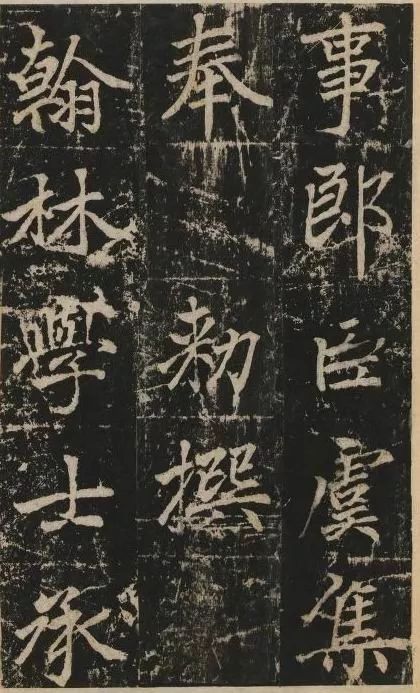 事郎臣虞集
奉 勅撰
翰林學士承